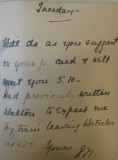 Tuesday-
Will do as you suggest
on your p. card & will
meet you 5.10.
Had previously written
Walters to expect me
by train leaving Waterloo
Yours